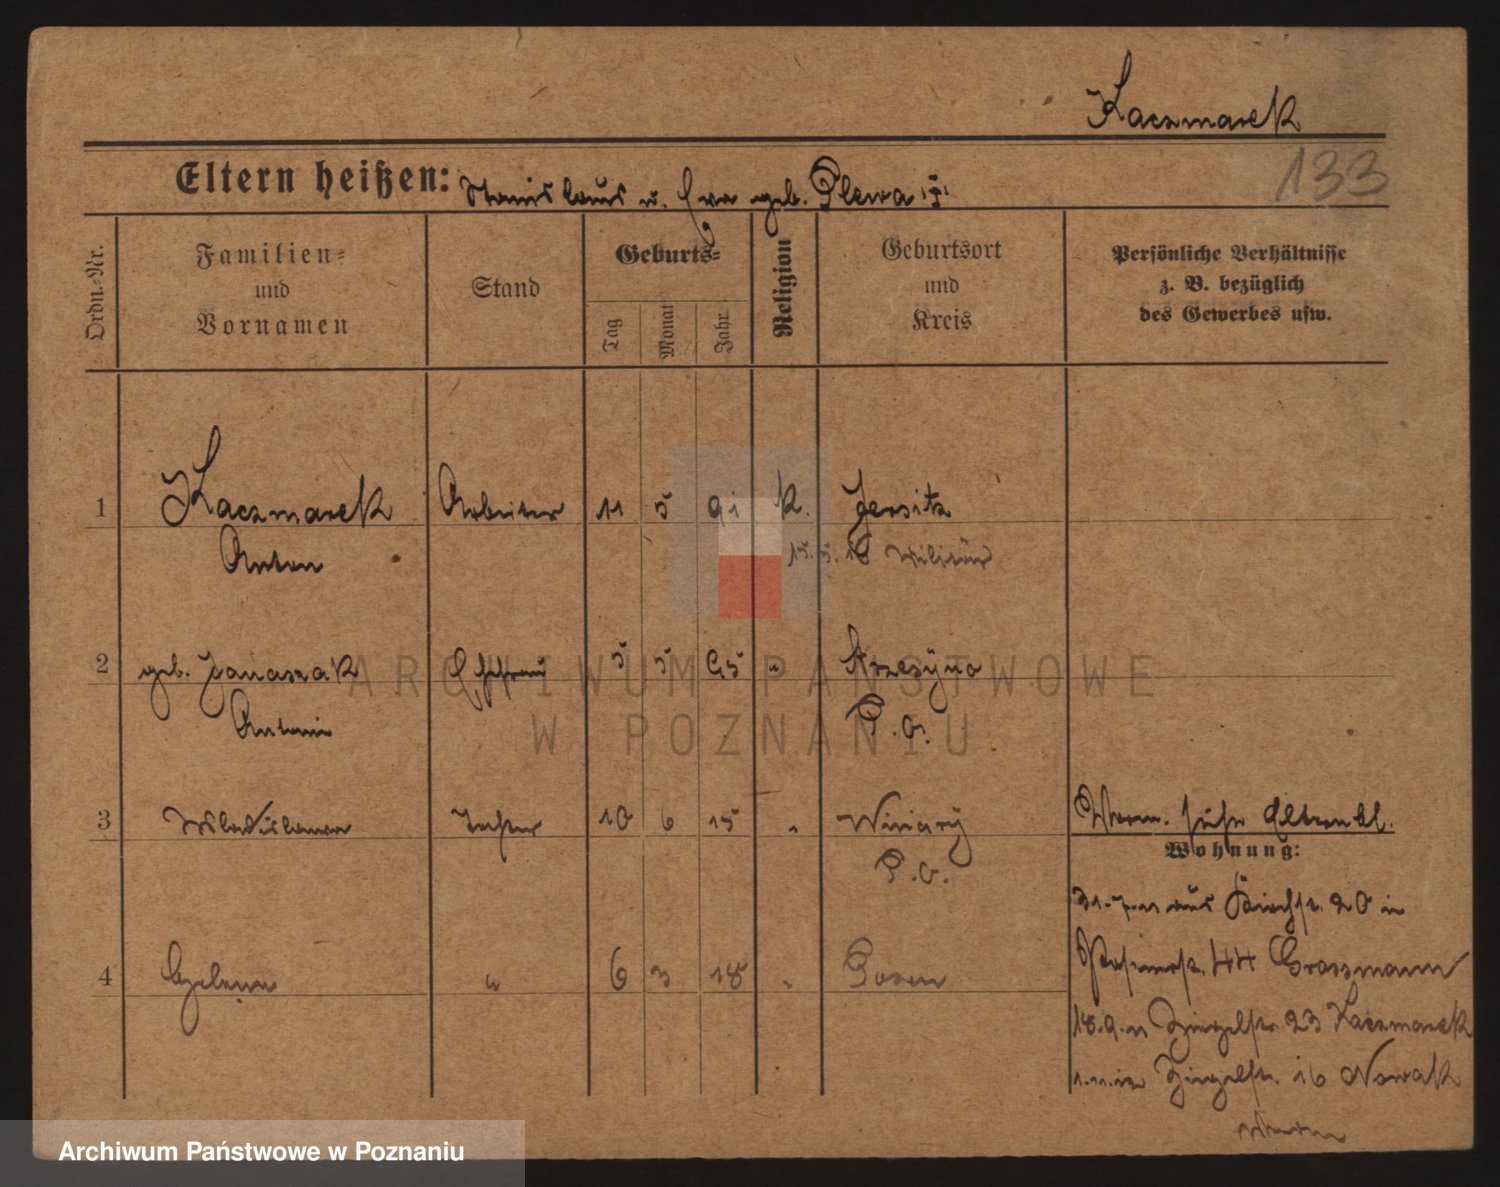 Kaczmarek
133
Eltern heißen: Stanislaus u. Eva geb. Plewa
Ordn.-Nr.
Familien-
und
Vornamen
Stand
Geburts-
Tag
Monat
Jahr
Religion
Geburtsort
und
Kreis
Persönliche Verhältnisse
z. B. bezüglich
des Gewerbes usw.
1 Kaczmarek Arbeiter 11 5 91 k. Jersitz
Anton 15.5.16 Militär
2 geb. Janaszak Ehefrau 5 5 95 " Strzeszyno
Antonie P.O.
3 Wladislawa Tochter 10 6 15 " Winiary
P.O.
Verm. siehe Elternbl.
Wohnung:
aus Kirchstr. 20 in
44 Grossmann
4 " 6 3 18 " Posen
18.9. Ziegelstr. 23 Kaczmarek
1.11. Ziegelstr. 16 Nowak
ARCHIWUM PAŃSTWOWE
W POZNANIU
Archiwum Państwowe w Poznaniu